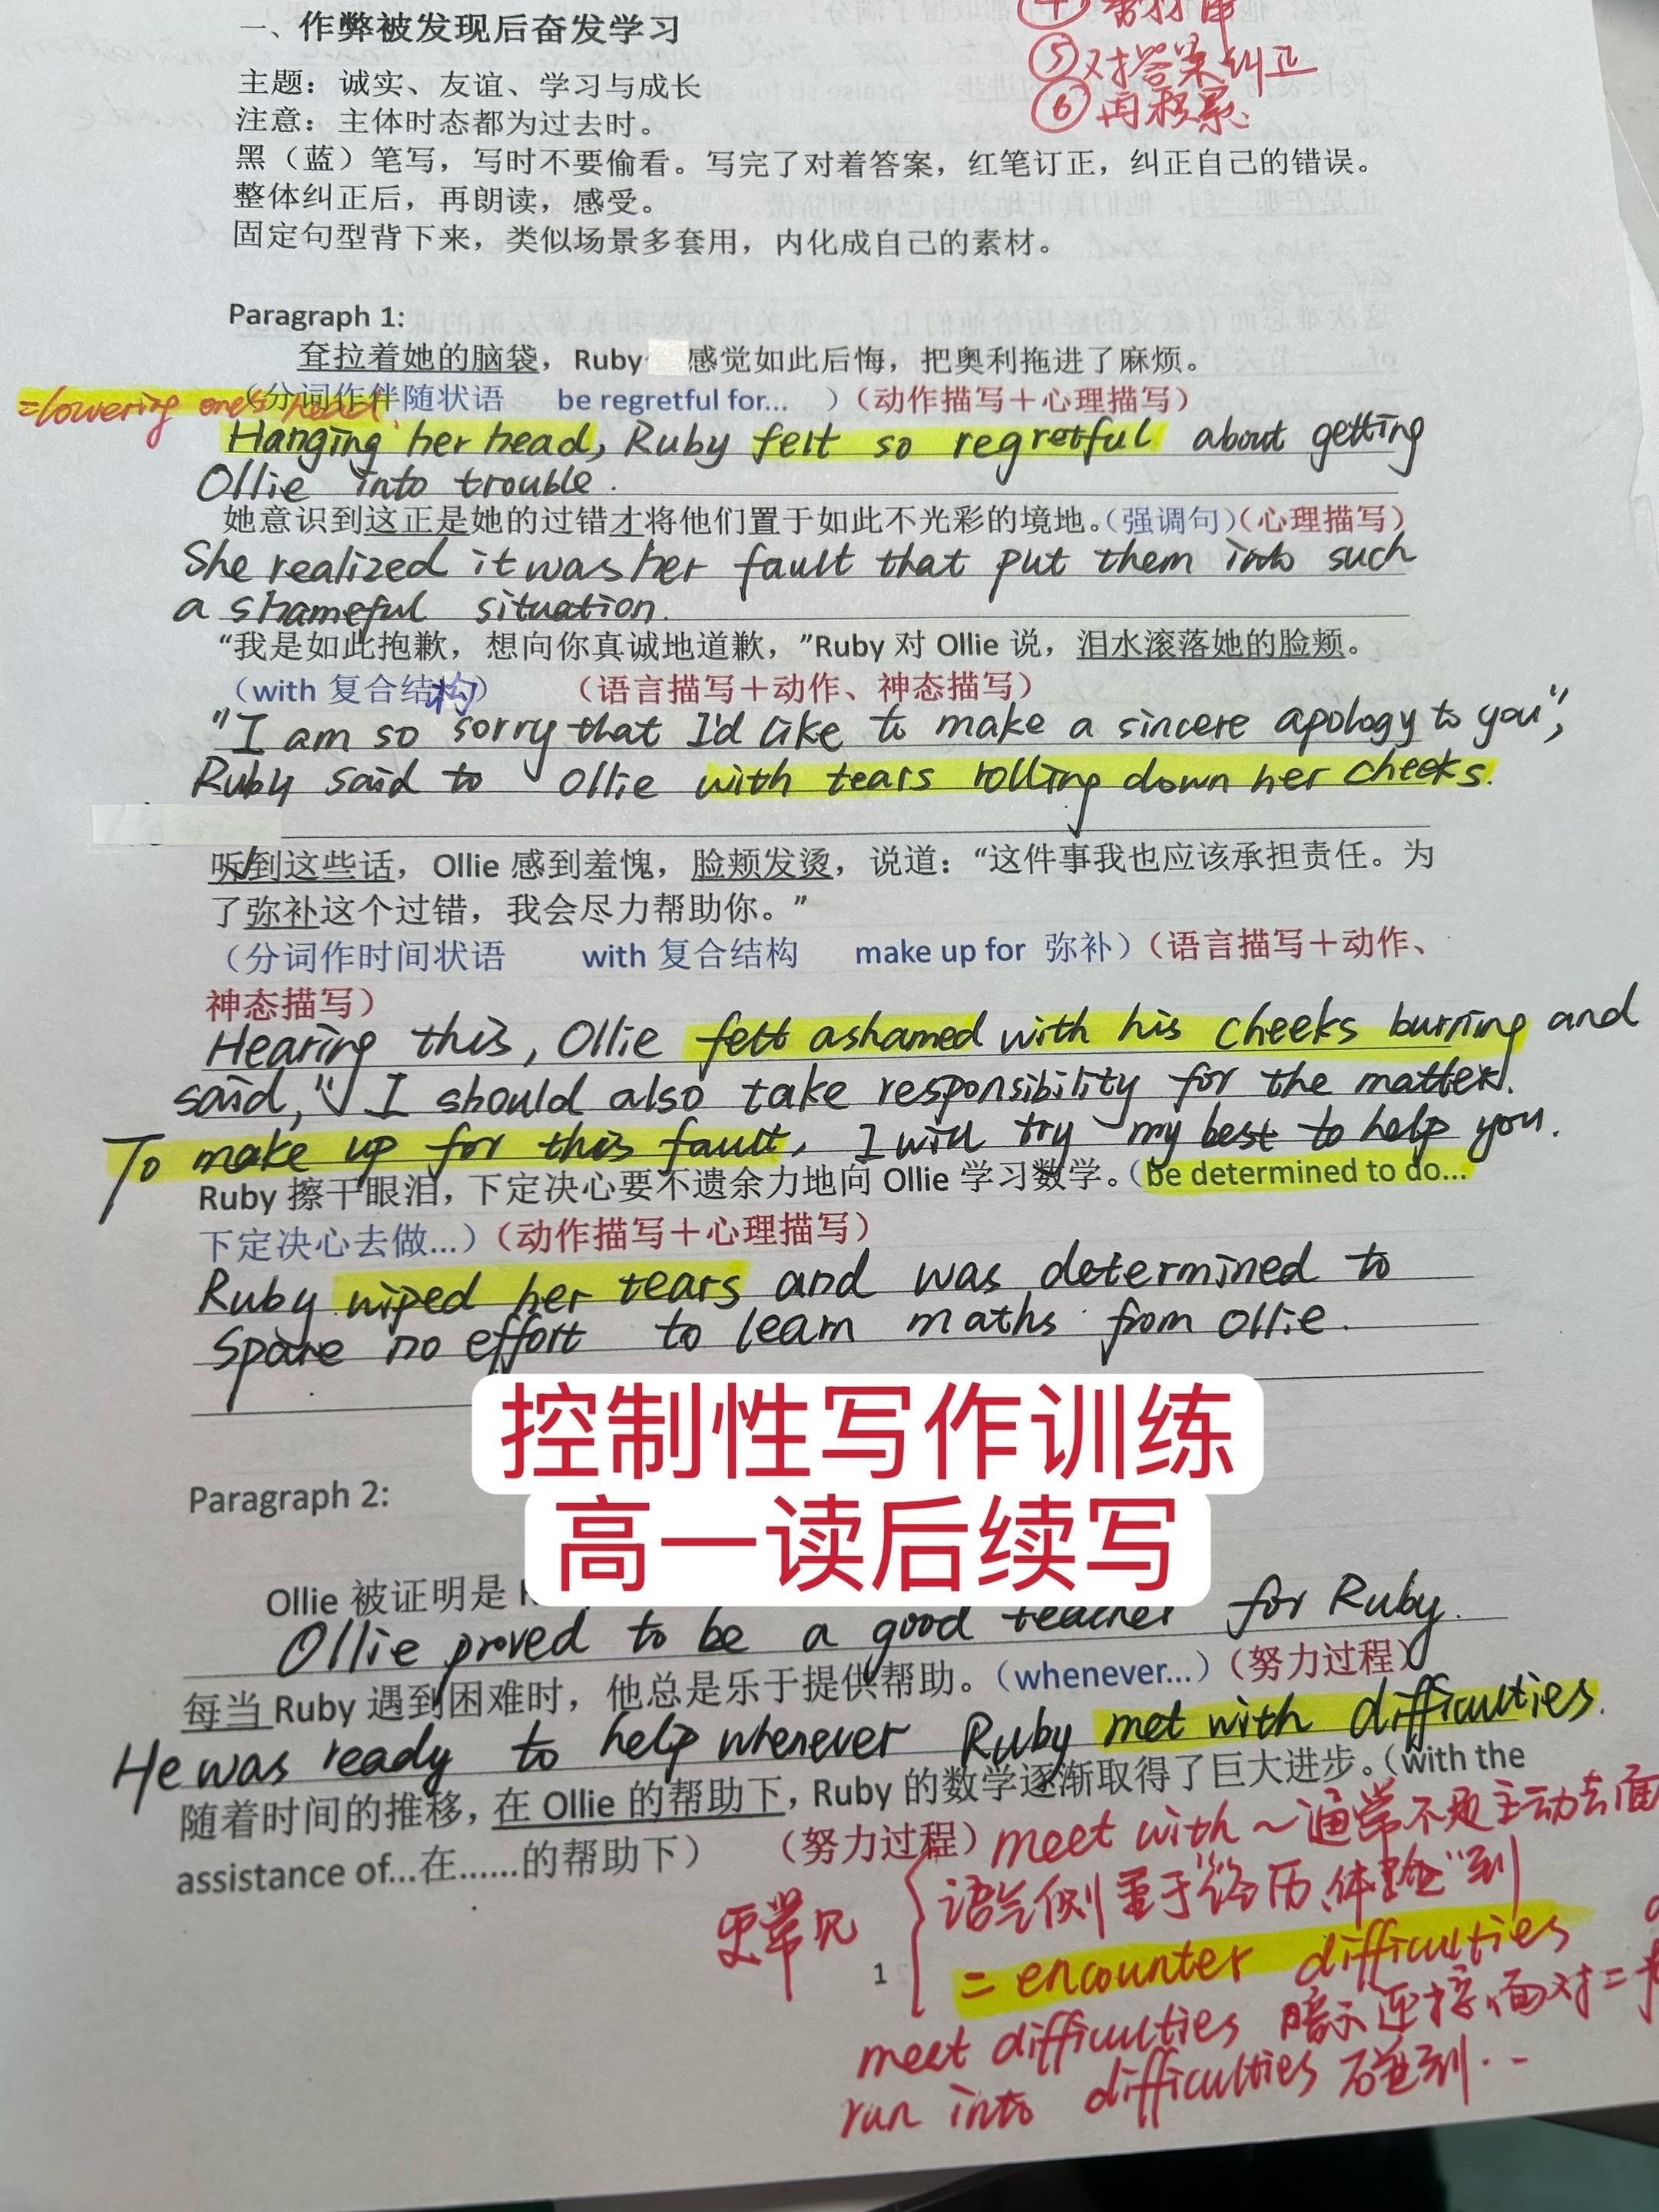 一、作弊被发现后奋发学习
⑤对答案纠正
⑥再积累
主题：诚实、友谊、学习与成长
注意：主体时态都为过去时。
黑（蓝）笔写，写时不要偷看。写完了对着答案，红笔订正，纠正自己的错误。
整体纠正后，再朗读，感受。
固定句型背下来，类似场景多套用，内化成自己的素材。
Paragraph 1:
耷拉着她的脑袋，Ruby 感觉如此后悔，把奥利拖进了麻烦。
=lowering one's head.
（分词作伴随状语 be regretful for... ）（动作描写＋心理描写）
Hanging her head, Ruby felt so regretful about getting
Ollie into trouble.
她意识到这正是她的过错才将他们置于如此不光彩的境地。（强调句）（心理描写）
She realized it was her fault that put them into such
a shameful situation.
“我是如此抱歉，想向你真诚地道歉，”Ruby 对 Ollie 说，泪水滚落她的脸颊。
（with 复合结构） （语言描写＋动作、神态描写）
"I am so sorry that I'd like to make a sincere apology to you",
Ruby said to Ollie with tears rolling down her cheeks.
听到这些话，Ollie 感到羞愧，脸颊发烫，说道：“这件事我也应该承担责任。为
了弥补这个过错，我会尽力帮助你。”
（分词作时间状语 with 复合结构 make up for 弥补）（语言描写＋动作、
神态描写）
Hearing this, Ollie felt ashamed with his cheeks burning and
said, "I should also take responsibility for the matter.
To make up for this fault, I will try my best to help you.
Ruby 擦干眼泪，下定决心要不遗余力地向 Ollie 学习数学。（be determined to do...
下定决心去做...）（动作描写＋心理描写）
Ruby wiped her tears and was determined to
spare no effort to learn maths from Ollie.
控制性写作训练
Paragraph 2:
高一读后续写
Ollie 被证明是
Ollie proved to be a good teacher for Ruby.
每当 Ruby 遇到困难时，他总是乐于提供帮助。（whenever...）（努力过程）
He was ready to help whenever Ruby met with difficulties.
随着时间的推移，在 Ollie 的帮助下，Ruby 的数学逐渐取得了巨大进步。（with the
assistance of...在......的帮助下） （努力过程）
meet with ~通常不是主动去面
更常见
语气侧重于"经历、体验"到
= encounter difficulties
1
meet difficulties 暗示迎接、面对=
run into difficulties 碰到...